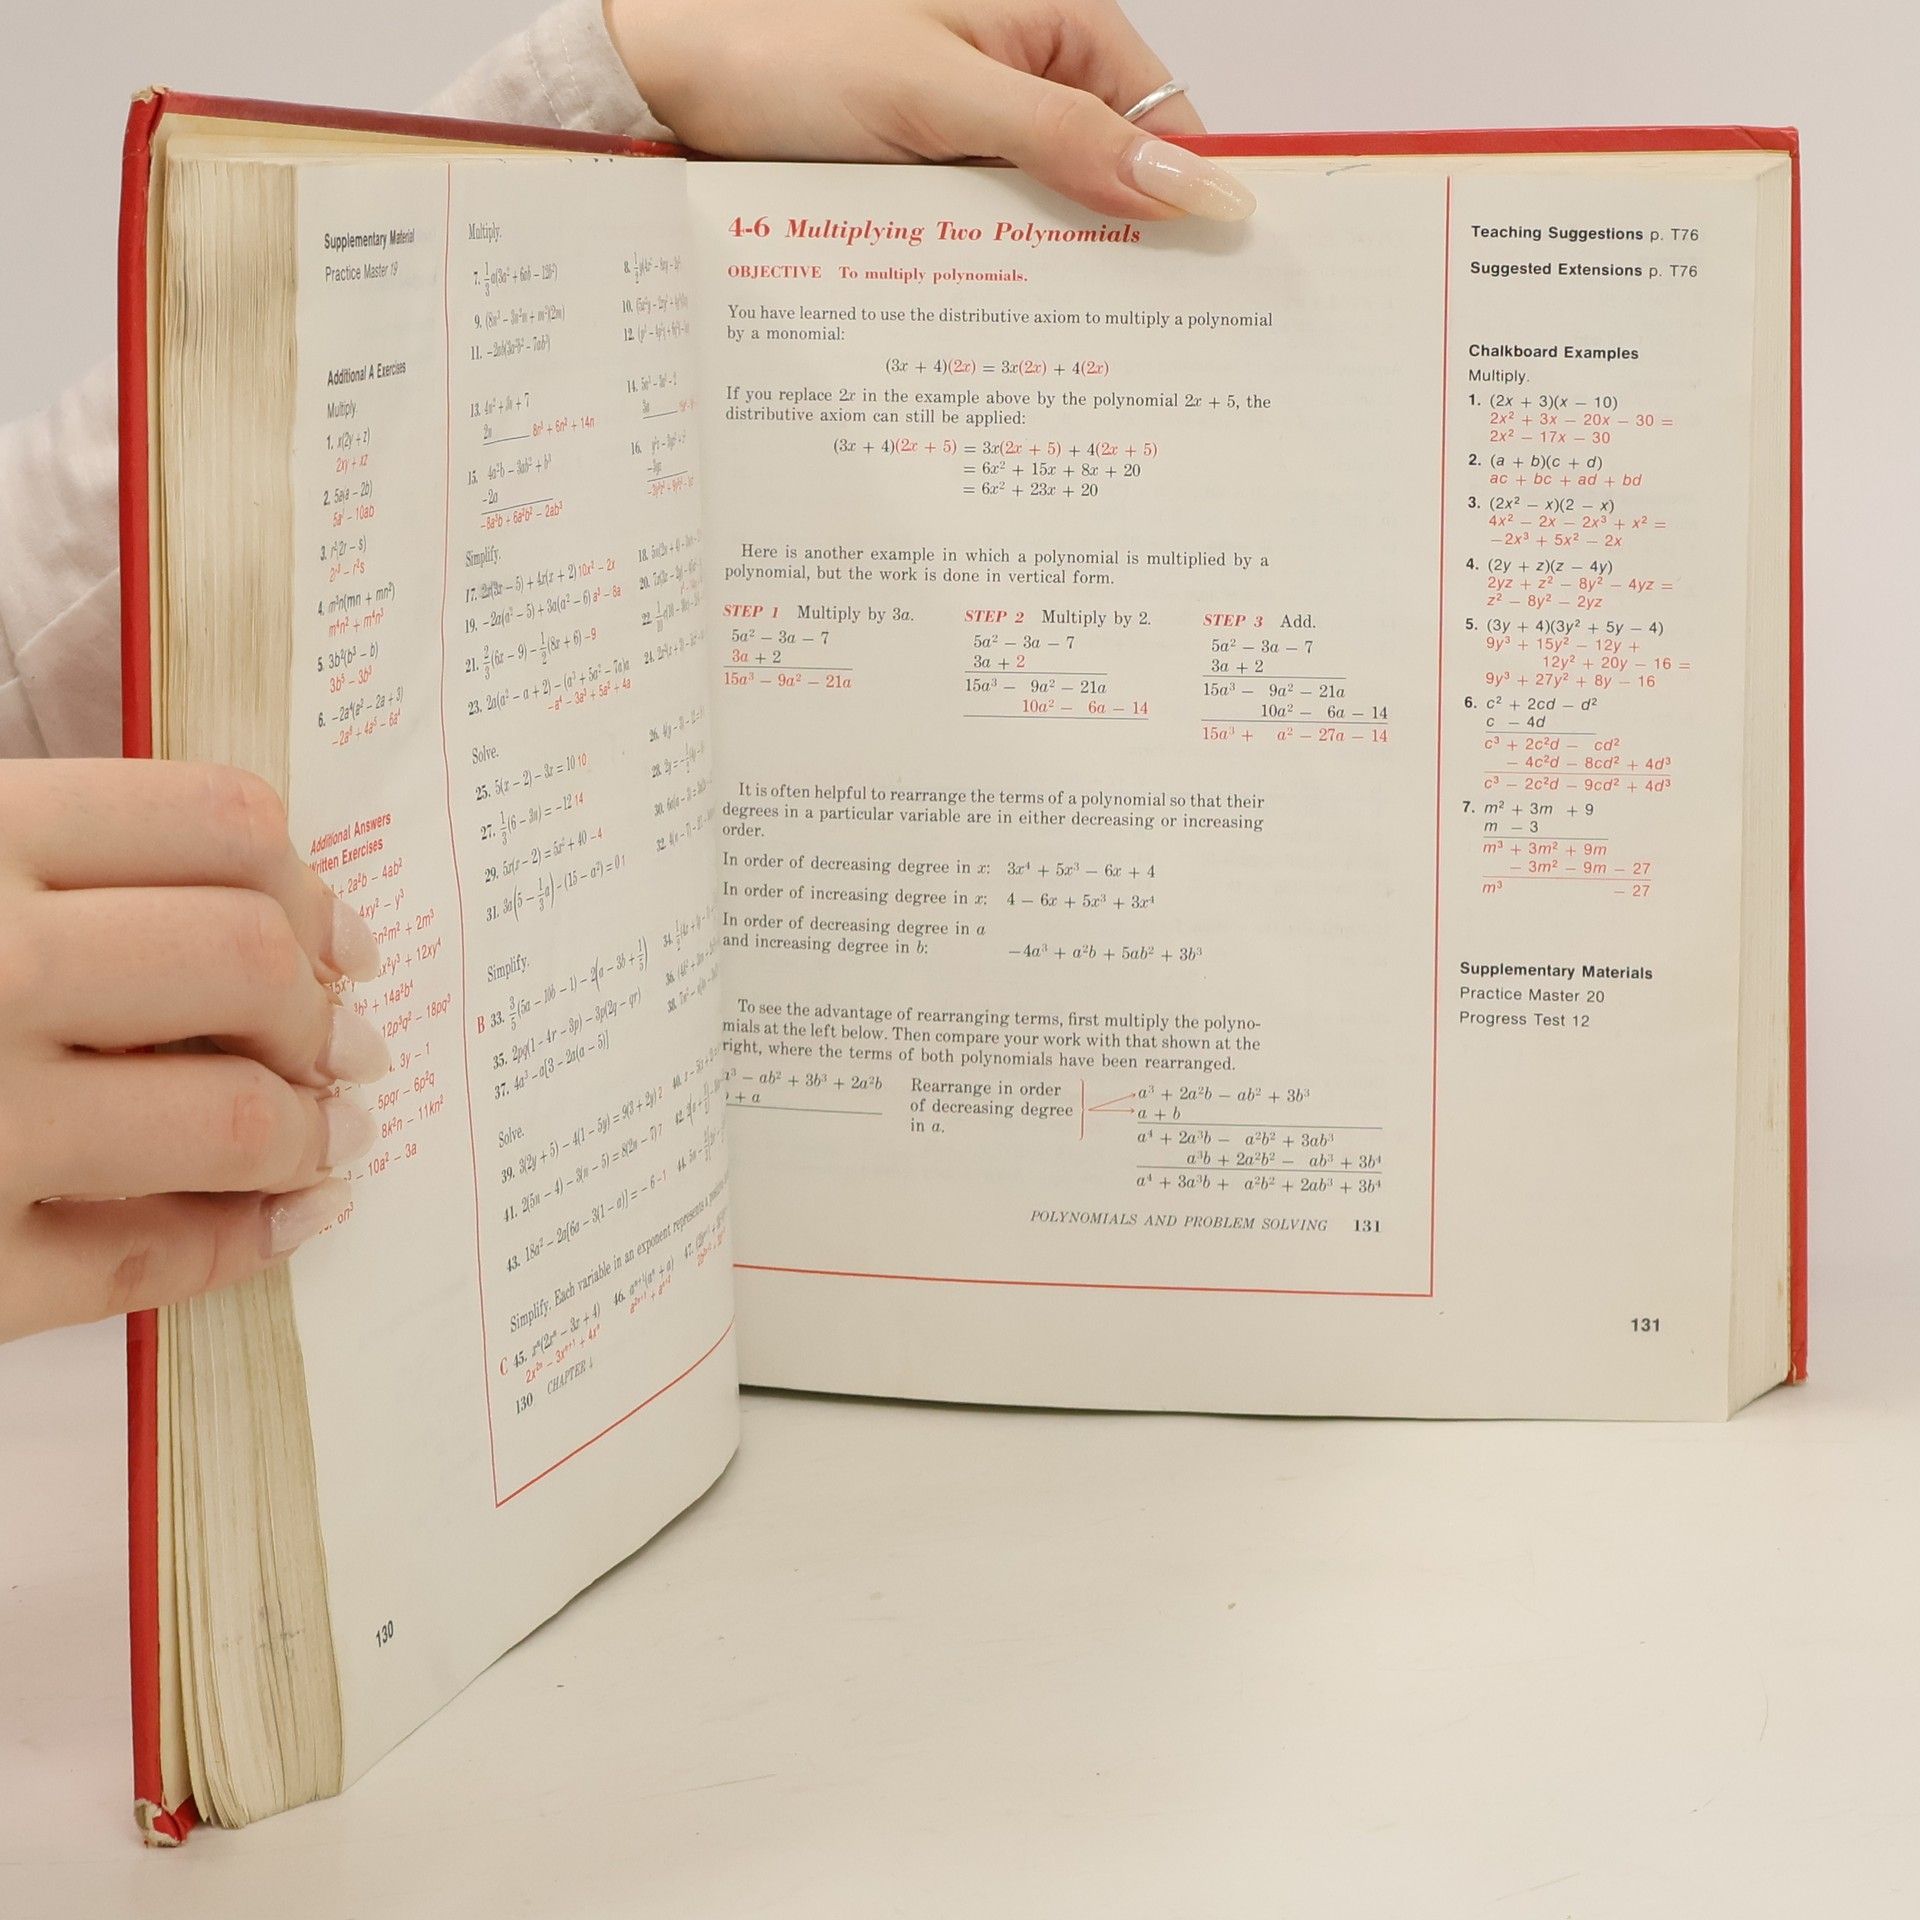 Supplementary Material
Practice Master 19
Additional A Exercises
Multiply.
1. x(2y + z)
2xy + xz
2. 5a(a − 2b)
5a² − 10ab
3. r²(2r − s)
2r³ − r²s
4. m³n(mn + mn²)
m⁴n² + m⁴n³
5. 3b²(b³ − b)
3b⁵ − 3b³
6. −2a⁴(a² − 2a + 3)
−2a⁶ + 4a⁵ − 6a⁴
Additional Answers
Written Exercises
+ 2a²b − 4ab²
4xy² − y³
+ 12xy⁴
+ 14a²b⁴
12p³q² − 18pq³
3y − 1
− 5pqr − 6p²q
8k²n − 11kn²
− 10a² − 3a
130
Multiply.
7. 1/3 a(3a² + 6ab − 12b²)
9. (8n³ − 3n²m + m³)(2m)
11. −2ab(3a²b² − 7ab³)
13. 4n² + 3n + 7
2n
8n³ + 6n² + 14n
14.
3a
15. 4a²b − 3ab² + b³
−2a
−8a³b + 6a²b² − 2ab³
16.
Simplify.
17. 2x(3x − 5) + 4x(x + 2) 10x² − 2x
19. −2a(a² − 5) + 3a(a² − 6) a³ − 8a
21. 2/3(6x − 9) − 1/2(8x + 6) −9
23. 2a(a² − a + 2) − (a³ + 5a² − 7a)a
−a⁴ − 3a³ + 5a² + 4a
Solve.
25. 5(x − 2) − 3x = 10 10
27. 1/3(6 − 3n) = −12 14
29. 5x(x − 2) = 5x² + 40 −4
31. 3a(5 − 1/3 a) − (15 − a²) = 0 1
Simplify.
B 33. 3/5(5a − 10b − 1) − 2(a − 3b + 1/5)
35. 2pq(1 − 4r − 3p) − 3p(2q − qr)
37. 4a³ − a[3 − 2a(a − 5)]
Solve.
39. 3(2y + 5) − 4(1 − 5y) = 9(3 + 2y) 2
41. 2(5n − 4) − 3(n − 5) = 8(2n − 7) 7
43. 18a² − 2a[6a − 3(1 − a)] = −6 −1
Simplify. Each variable in an exponent represents a
C 45. xⁿ(2xⁿ − 3x + 4)
2x²ⁿ − 3xⁿ⁺¹ + 4xⁿ
46. aⁿ⁺¹(aⁿ + a)
a²ⁿ⁺¹ + aⁿ⁺²
47.
130 CHAPTER 4
4-6 Multiplying Two Polynomials
OBJECTIVE To multiply polynomials.
You have learned to use the distributive axiom to multiply a polynomial
by a monomial:
(3x + 4)(2x) = 3x(2x) + 4(2x)
If you replace 2x in the example above by the polynomial 2x + 5, the
distributive axiom can still be applied:
(3x + 4)(2x + 5) = 3x(2x + 5) + 4(2x + 5)
= 6x² + 15x + 8x + 20
= 6x² + 23x + 20
Here is another example in which a polynomial is multiplied by a
polynomial, but the work is done in vertical form.
STEP 1 Multiply by 3a.
5a² − 3a − 7
3a + 2
15a³ − 9a² − 21a
STEP 2 Multiply by 2.
5a² − 3a − 7
3a + 2
15a³ − 9a² − 21a
10a² − 6a − 14
STEP 3 Add.
5a² − 3a − 7
3a + 2
15a³ − 9a² − 21a
10a² − 6a − 14
15a³ + a² − 27a − 14
It is often helpful to rearrange the terms of a polynomial so that their
degrees in a particular variable are in either decreasing or increasing
order.
In order of decreasing degree in x: 3x⁴ + 5x³ − 6x + 4
In order of increasing degree in x: 4 − 6x + 5x³ + 3x⁴
In order of decreasing degree in a
and increasing degree in b: −4a³ + a²b + 5ab² + 3b³
To see the advantage of rearranging terms, first multiply the polyno-
mials at the left below. Then compare your work with that shown at the
right, where the terms of both polynomials have been rearranged.
a³ − ab² + 3b³ + 2a²b
b + a
Rearrange in order
of decreasing degree
in a.
a³ + 2a²b − ab² + 3b³
a + b
a⁴ + 2a³b − a²b² + 3ab³
a³b + 2a²b² − ab³ + 3b⁴
a⁴ + 3a³b + a²b² + 2ab³ + 3b⁴
POLYNOMIALS AND PROBLEM SOLVING 131
Teaching Suggestions p. T76
Suggested Extensions p. T76
Chalkboard Examples
Multiply.
1. (2x + 3)(x − 10)
2x² + 3x − 20x − 30 =
2x² − 17x − 30
2. (a + b)(c + d)
ac + bc + ad + bd
3. (2x² − x)(2 − x)
4x² − 2x − 2x³ + x² =
−2x³ + 5x² − 2x
4. (2y + z)(z − 4y)
2yz + z² − 8y² − 4yz =
z² − 8y² − 2yz
5. (3y + 4)(3y² + 5y − 4)
9y³ + 15y² − 12y +
12y² + 20y − 16 =
9y³ + 27y² + 8y − 16
6. c² + 2cd − d²
c − 4d
c³ + 2c²d − cd²
− 4c²d − 8cd² + 4d³
c³ − 2c²d − 9cd² + 4d³
7. m² + 3m + 9
m − 3
m³ + 3m² + 9m
− 3m² − 9m − 27
m³ − 27
Supplementary Materials
Practice Master 20
Progress Test 12
131